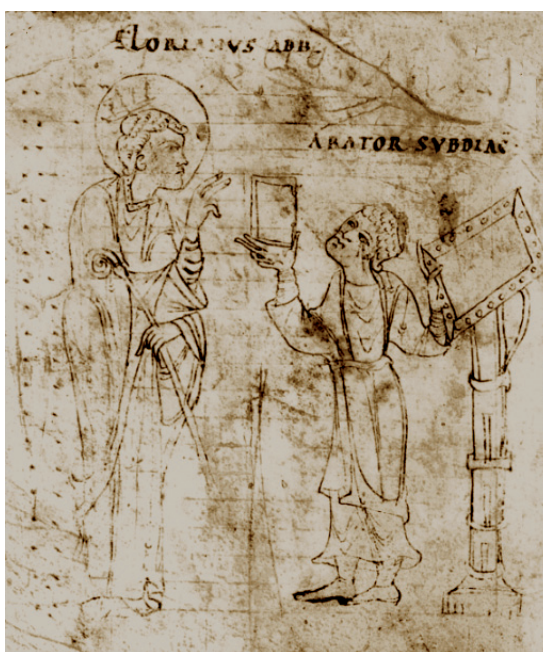 FLORIANVS ABB.
ARATOR SVBDIAC